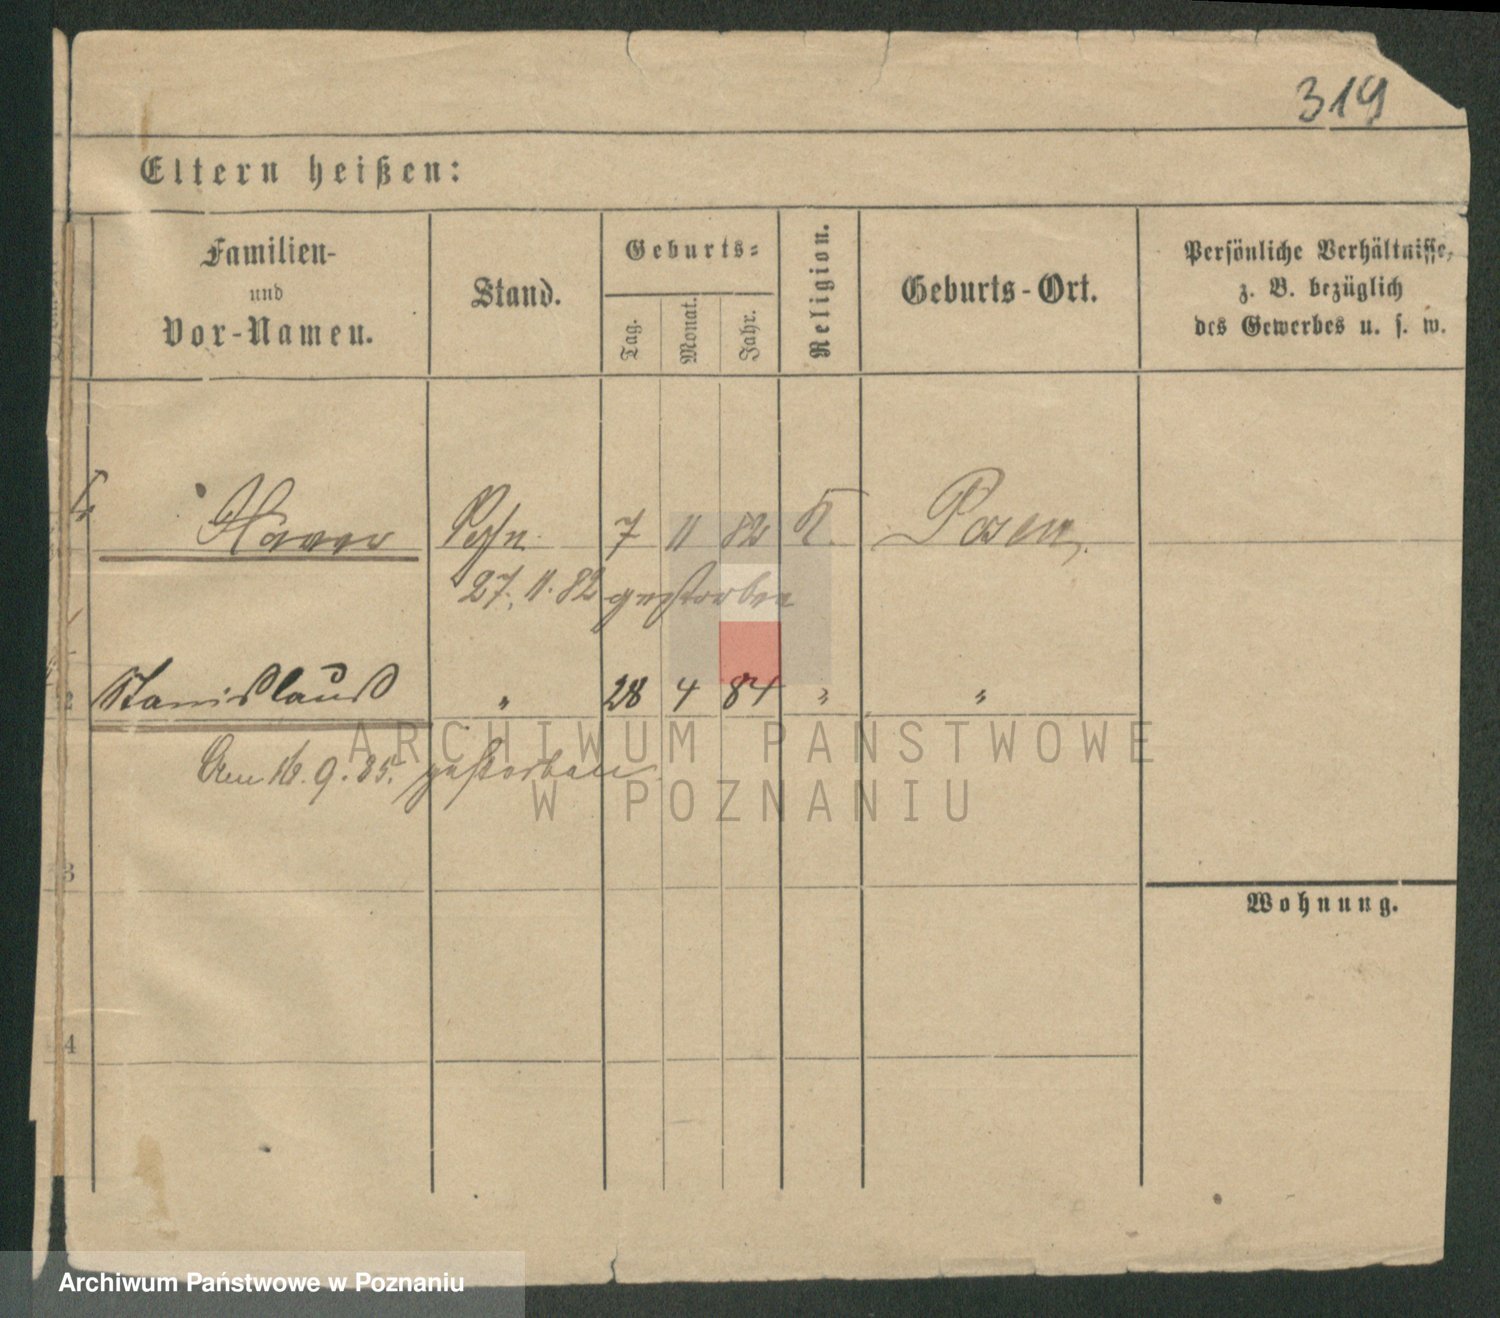 319
Eltern heißen:
Familien-
und
Vor-Namen.
Stand.
Geburts-
Tag.
Monat.
Jahr.
Religion.
Geburts-Ort.
Persönliche Verhältnisse,
z. B. bezüglich
des Gewerbes u. s. w.
Sohn 7 11 82 K. Posen
27. 11. 82 gestorben
2 Stanislaus " 28 4 84 " "
Am 16. 9. 85. gestorben
3
Wohnung.
4
ARCHIWUM PAŃSTWOWE
W POZNANIU
Archiwum Państwowe w Poznaniu